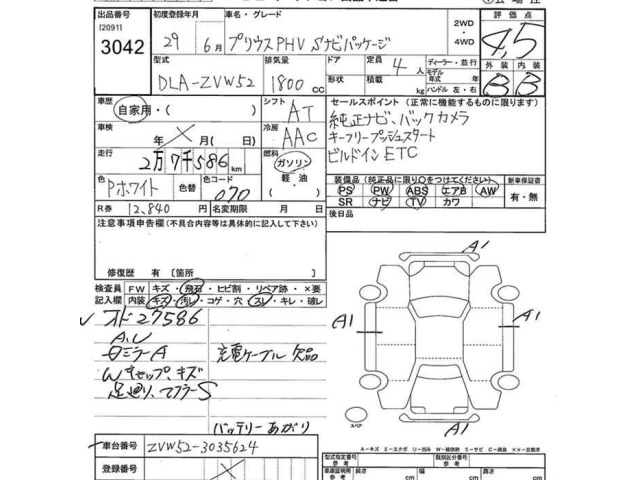 出品番号 初度登録年月 車名・グレード 2WD ・ 4WD 評価点
[20911]
3042 29 年 6月 プリウスPHV Sナビパッケージ 4.5
型式 排気量 ドア 定員 ディーラー・並行 外装 内装
DLA-ZVW52 1800 CC 形状 4人 積載 kg モデル年式 年 ハンドル 左・右 B B
車歴 自家用・( ) シフト AT セールスポイント (正常に機能するものに限ります)
車検 年 X 月( 日) 冷房 AAC 純正ナビ、バックカメラ
走行 2万7千586km 燃料 ガソリン 軽油 ・( ) キーフリープッシュスタート
ビルドインETC
色 Pホワイト 色替 色コード 070 装備品 (純正品に限り○をつけてください) 新車保証書
PS PW ABS エアB AW 有・無
SR ナビ TV カワ
R券 12,840円 名変期限 月 日 後日品
注意事項申告欄(不具合内容等は具体的に記入して下さい)
修復歴 有 [箇所 ]
検査員記入欄 FW キズ・飛石・ヒビ割・リペア跡・×要
内装 キズ・汚レ・コゲ・穴・スレ・キレ・破レ
オド27586
A,U
日ミラーA 充電ケーブル 欠品
Wキャップ、キズ
足廻り、マフラーS
バッテリーあがり
A1
A1
A1
A1
スペア
A=キズ E=エクボ U=凹み W=補修跡 S=サビ C=腐食 ××=交換済
車台番号 ZVW52-3035624
登録番号 X
型式指定番号 参考 類別区分番号 参考
車庫証明用 参考 長さ cm 幅 cm 高さ cm